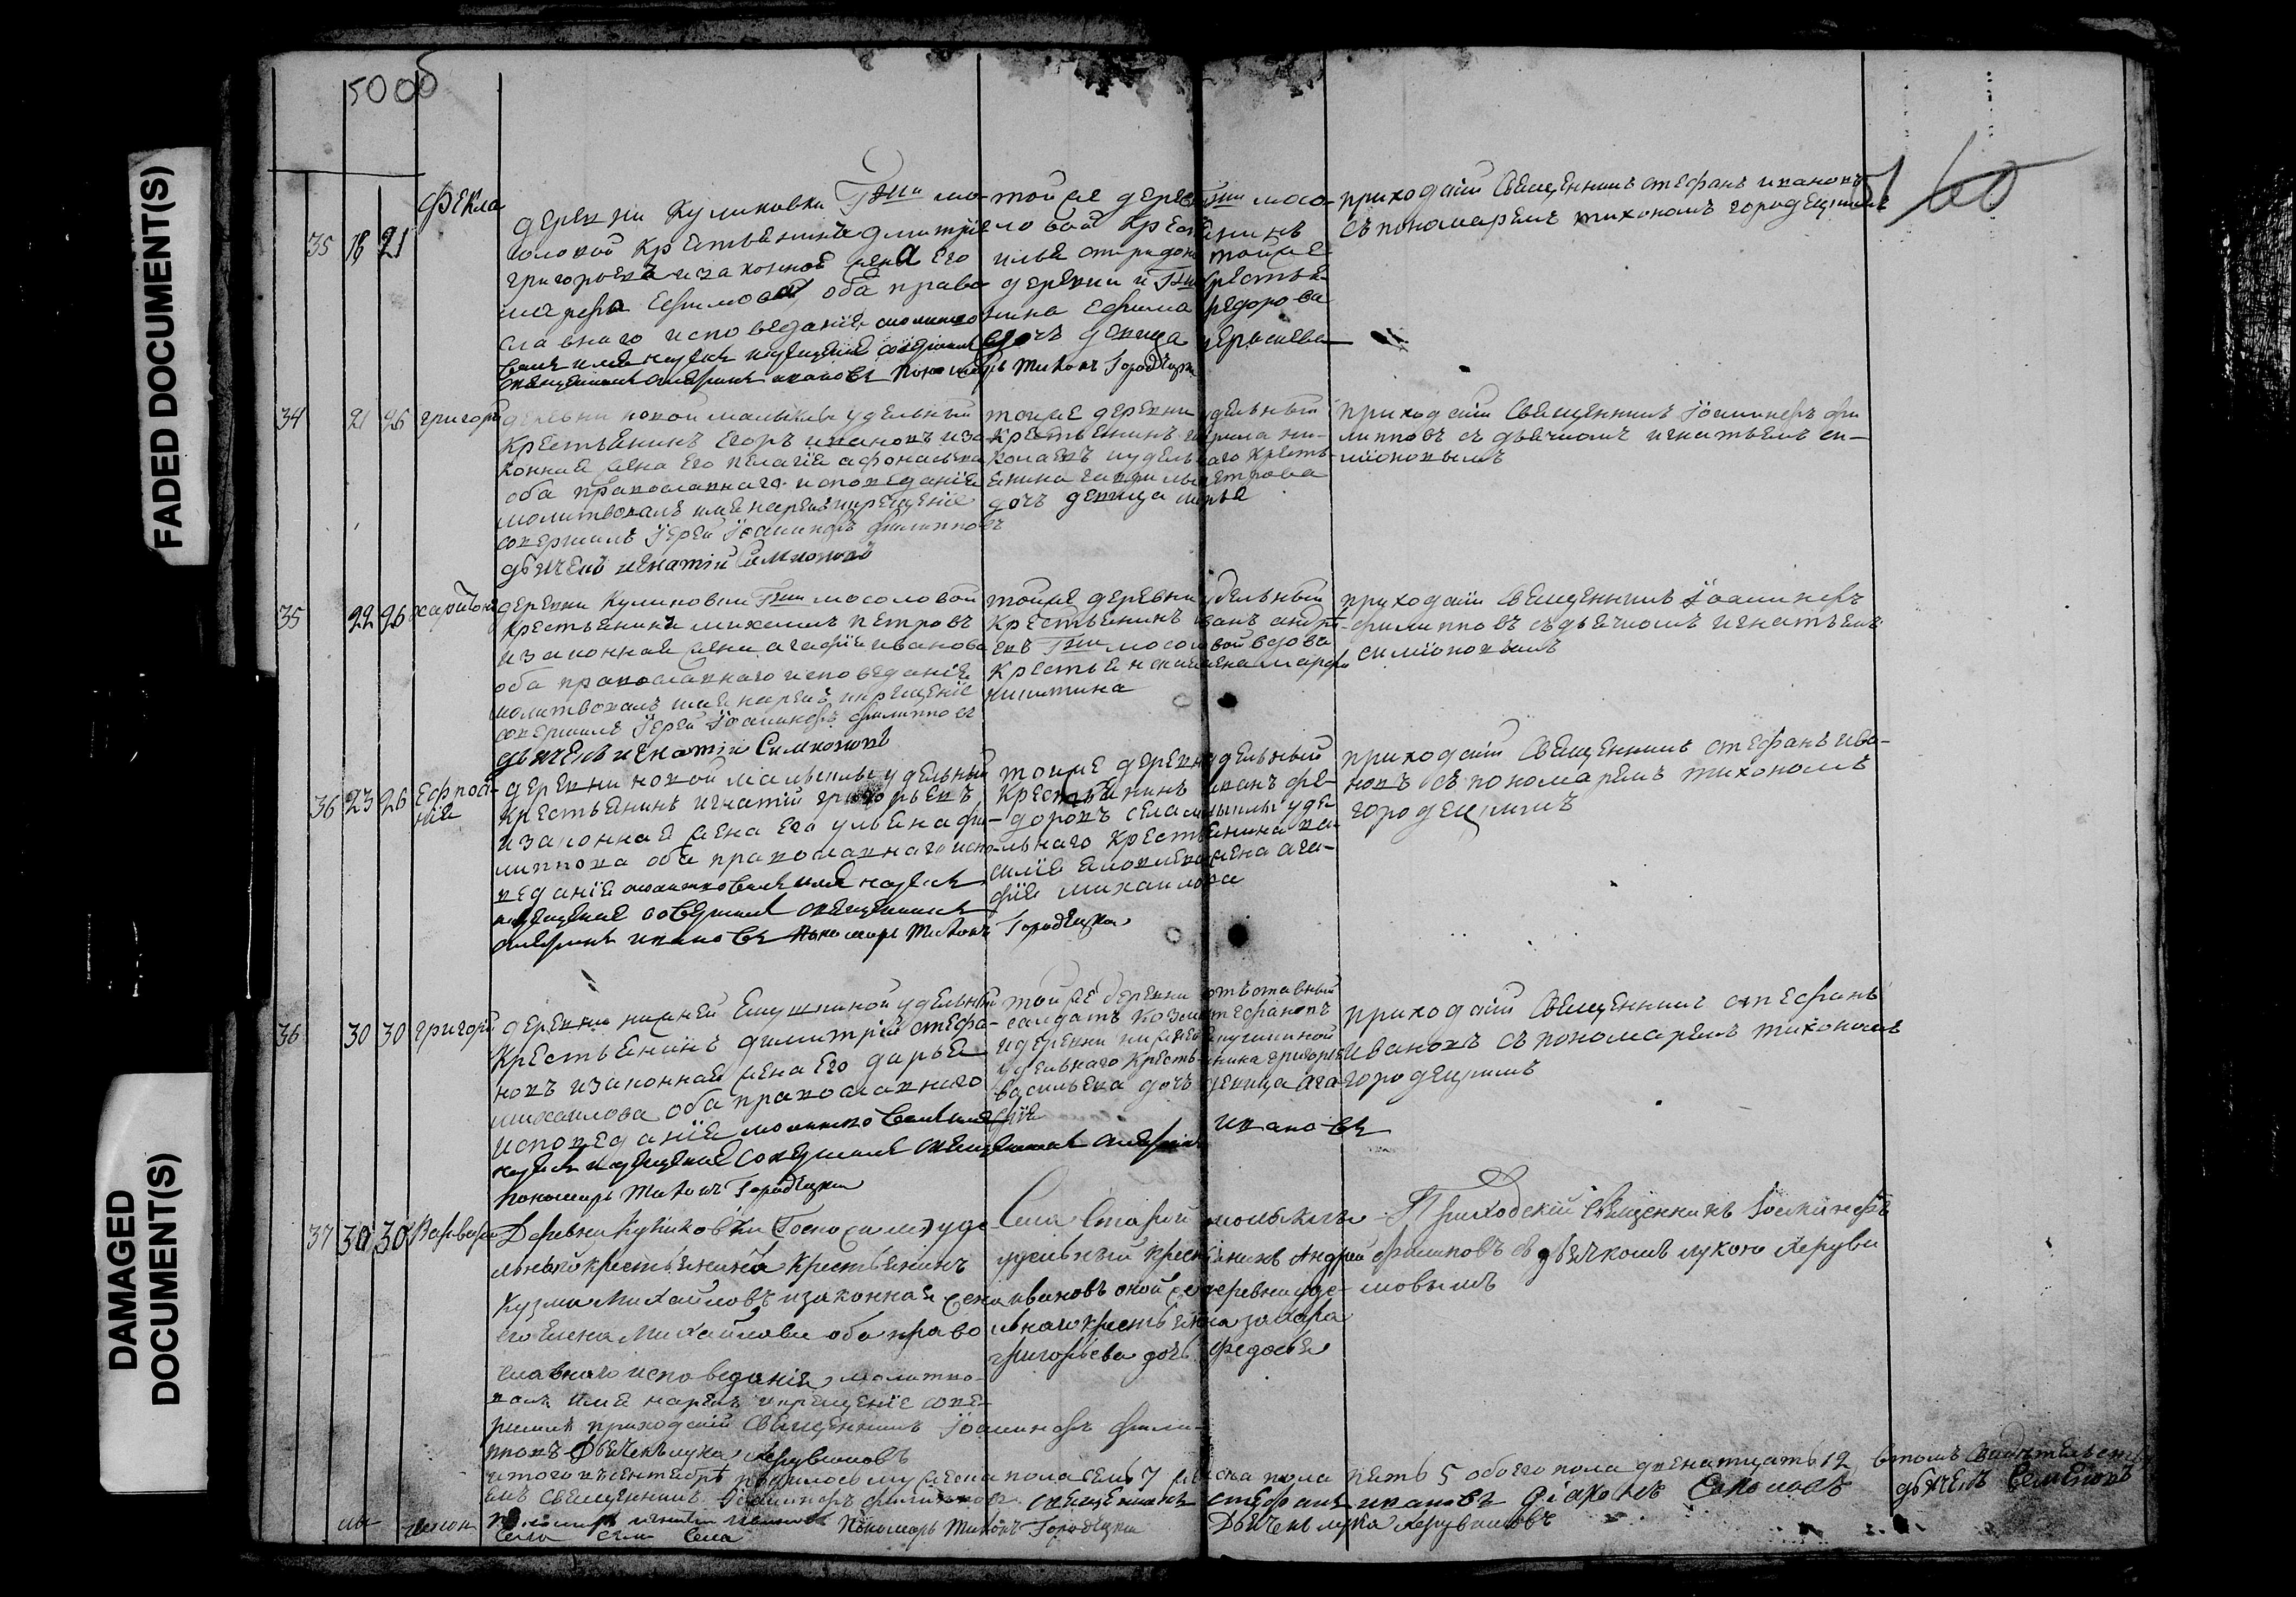 FADED DOCUMENT(S)
DAMAGED
DOCUMENT(S)
50 об
51
60
35 18 21 Фекла
деревни Куликовки Гжи мо-
соловой крестьянинъ дмитріе
григорьевъ изаконной жена его
Ефимова оба право-
славнаго исповеданіе молитво
валъ имя нареклъ икрещеніе совершилъ
священникъ стефанъ ивановъ Пономарь Тихонъ Городецки
тойже дерев Гжи мосо-
ловой крестьянинъ
илья спиридон тойже
деревни и Гжи крестья-
нина Ефима Федорова
дочь девица
приходскій священникъ стефанъ ивановъ
съ пономаремъ тихономъ городецкимъ
34 21 26 григорій
деревни новой малыклы удельный
крестьянинъ Егоръ ивановъ иза-
конная жена его пелагіе афонасьева
оба православнаго исповеданіе
молитвовалъ имя нарекъ икрещеніе
совершилъ Іерей Іоанникъ филипповъ
дьячекъ игнатій Симионовъ
тойже деревни удельный
крестьянинъ гаврила ни-
колаевъ иудельнаго кресть-
янина гаврилы петрова
дочь девица
приходскій священникъ Іоанникъ фи
липповъ съ дьячкомъ игнатьемъ си-
мионовымъ
35 22 26 харитонъ
деревни Куликовки Гжи мосоловой
крестьянинъ михаилъ петровъ
изаконная жена агафіе иванова
оба православнаго исповеданіе
молитвовалъ имя нарекъ икрещеніе
совершилъ Іерей Іоанникъ филипповъ
дьячекъ игнатій Симионовъ
тойже деревни удельный
крестьянинъ иванъ андре-
евъ Гжи мосоловой вдова
крестьянская жена марфа
никитина
приходскій священникъ Іоанникъ
филипповъ съ дьячкомъ игнатьемъ
симионовымъ
36 23 26 Ефросі-
ніе
деревни новой малыклы удельный
крестьянинъ игнатій григорьевъ
изаконная жена его ульяна фи-
липпова оба православнаго испо-
веданіе молитвовалъ имя нарекъ
икрещеніе совершилъ священникъ
стефанъ ивановъ пономарь Тихонъ Городецки
тойже деревни удельный
крестьянинъ иванъ фе-
доровъ села малыклы уде
льнаго крестьянина ва-
силіе жена ага-
фіе михаилова
приходскій священникъ стефанъ ива-
новъ съ пономаремъ тихономъ
городецкимъ
36 30 30 григорій
деревни нижней удельный
крестьянинъ димитрій стефа-
новъ изаконная жена его дарья
михаилова оба православнаго
исповеданіе молитвовалъ имя
нарекъ икрещеніе совершилъ священникъ стефанъ ивановъ
пономарь Тихонъ Городецки
тойже деревни отъставный
салдатъ козма стефановъ
идеревни нижней
удельнаго крестьянина григорія
васильева дочь девица ага
фіе
приходскій священникъ стефанъ
Ивановъ съ пономаремъ тихономъ
городецкимъ
37 30 30 Варвара
Деревни Куликовки Госпожи уде
льнаго крестьянина крестьянинъ
Кузма Михайловъ изаконная жена
его Елена Михайлова оба право
славнаго исповеданія молитво-
валъ имя нарекъ икрещеніе сове-
ршилъ приходскій священникъ Іоанникъ фили-
пповъ Дьячекъ лука херувимовъ
Села Старой малыклы
удельный крестьянинъ Андрей
ивановъ оной же деревни уде-
льнаго крестьянина захара
григорьева дочь Федосья
Приходскій священникъ Іоанникъ
филиповъ съ дьячкомъ лукою херуви
мовымъ
итого въ сентябре родилось мужеска пола семь 7 женска пола пять 5 обоего пола двенатцать 12 втомъ
священникъ Іоанникъ филипповъ священникъ стефанъ ивановъ діаконъ
дьячекъ
Пономарь Тихонъ Городецки Дьячекъ лука херувимовъ